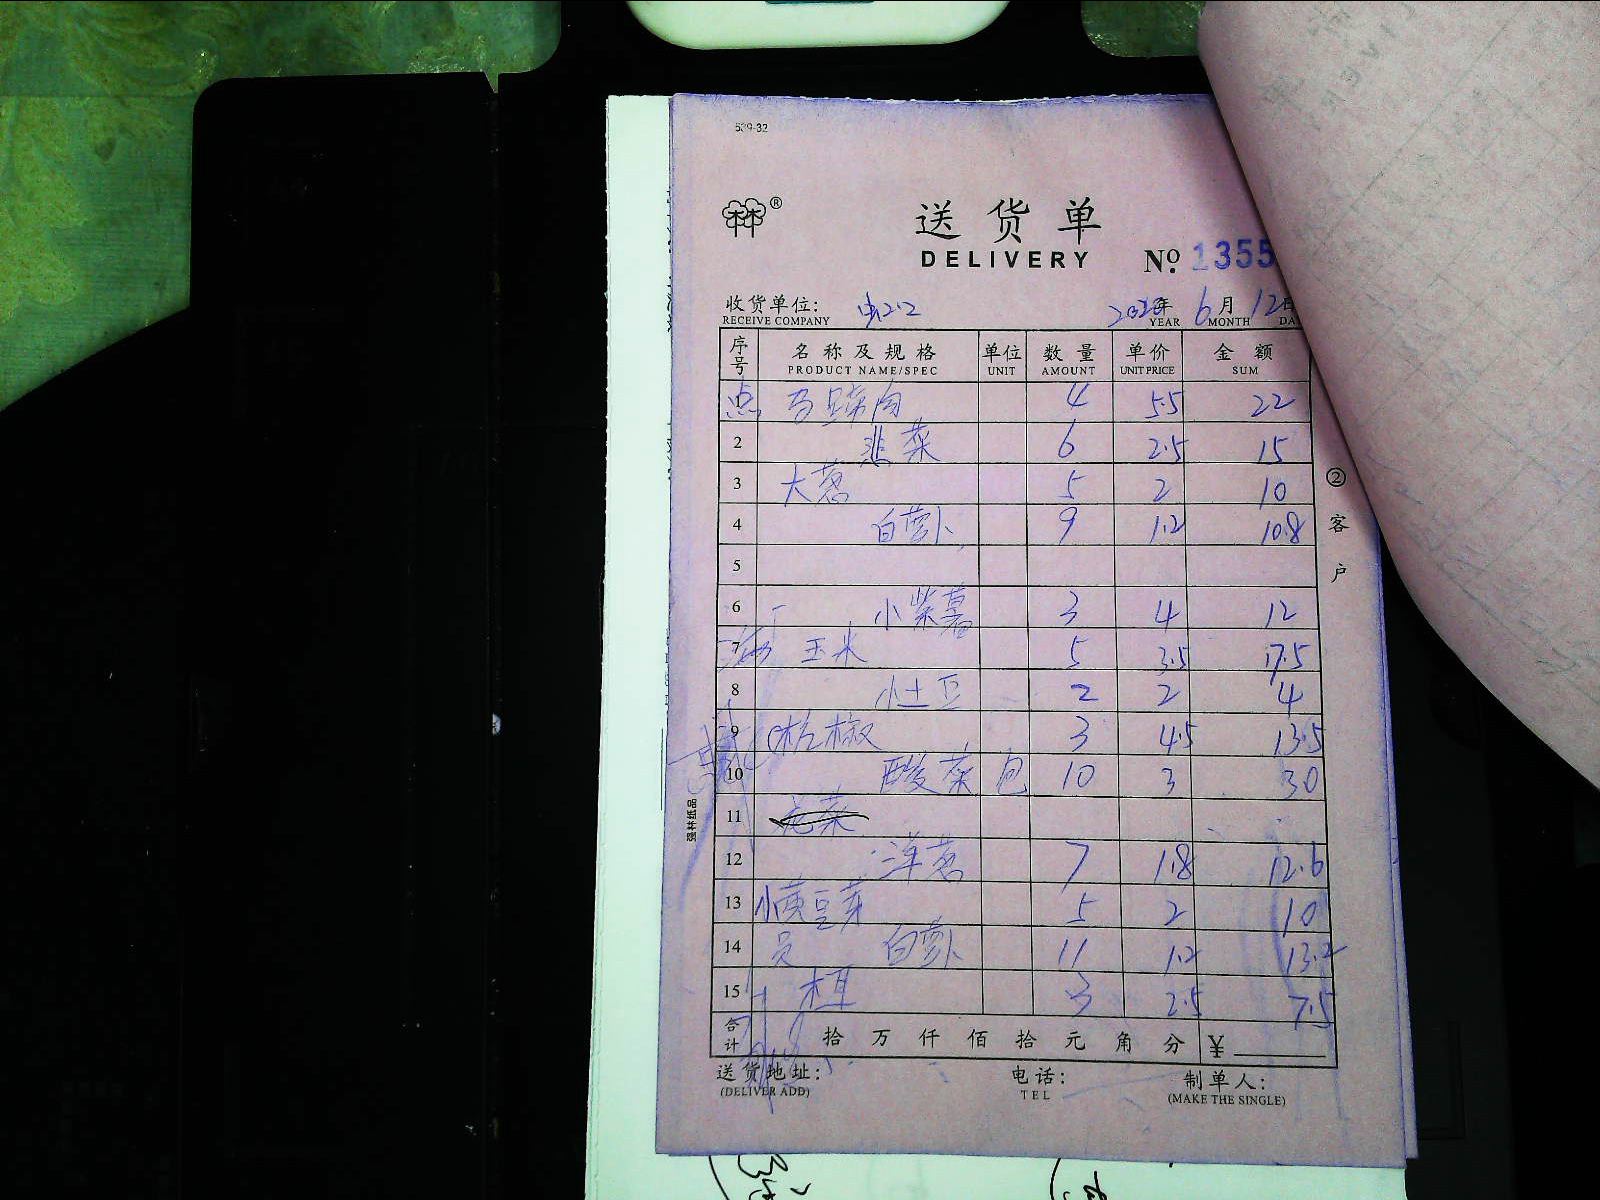 539-32
®
送货单
DELIVERY No. 1355
收货单位: 年 6 月 12 日
RECEIVE COMPANY YEAR MONTH DA
序号 名称及规格 单位 数量 单价 金额
PRODUCT NAME/SPEC UNIT AMOUNT UNIT PRICE SUM
点 马蹄肉 4 5.5 22
2 韭菜 6 2.5 15
3 大葱 5 2 10
4 白萝卜 9 1.2 10.8
5
6 小紫薯 3 4 12
7 玉米 5 3.5 17.5
8 小土豆 2 2 4
9 椒 3 4.5 13.5
10 酸菜 包 10 3 30
11
12 洋葱 7 1.8 12.6
13 小黄豆芽 5 2 10
14 员 白萝卜 11 1.2 13.2
15 木耳 3 2.5 7.5
合计 拾 万 仟 佰 拾 元 角 分 ¥
送货地址: 电话: 制单人:
(DELIVER ADD) TEL (MAKE THE SINGLE)
②客户
强林纸品